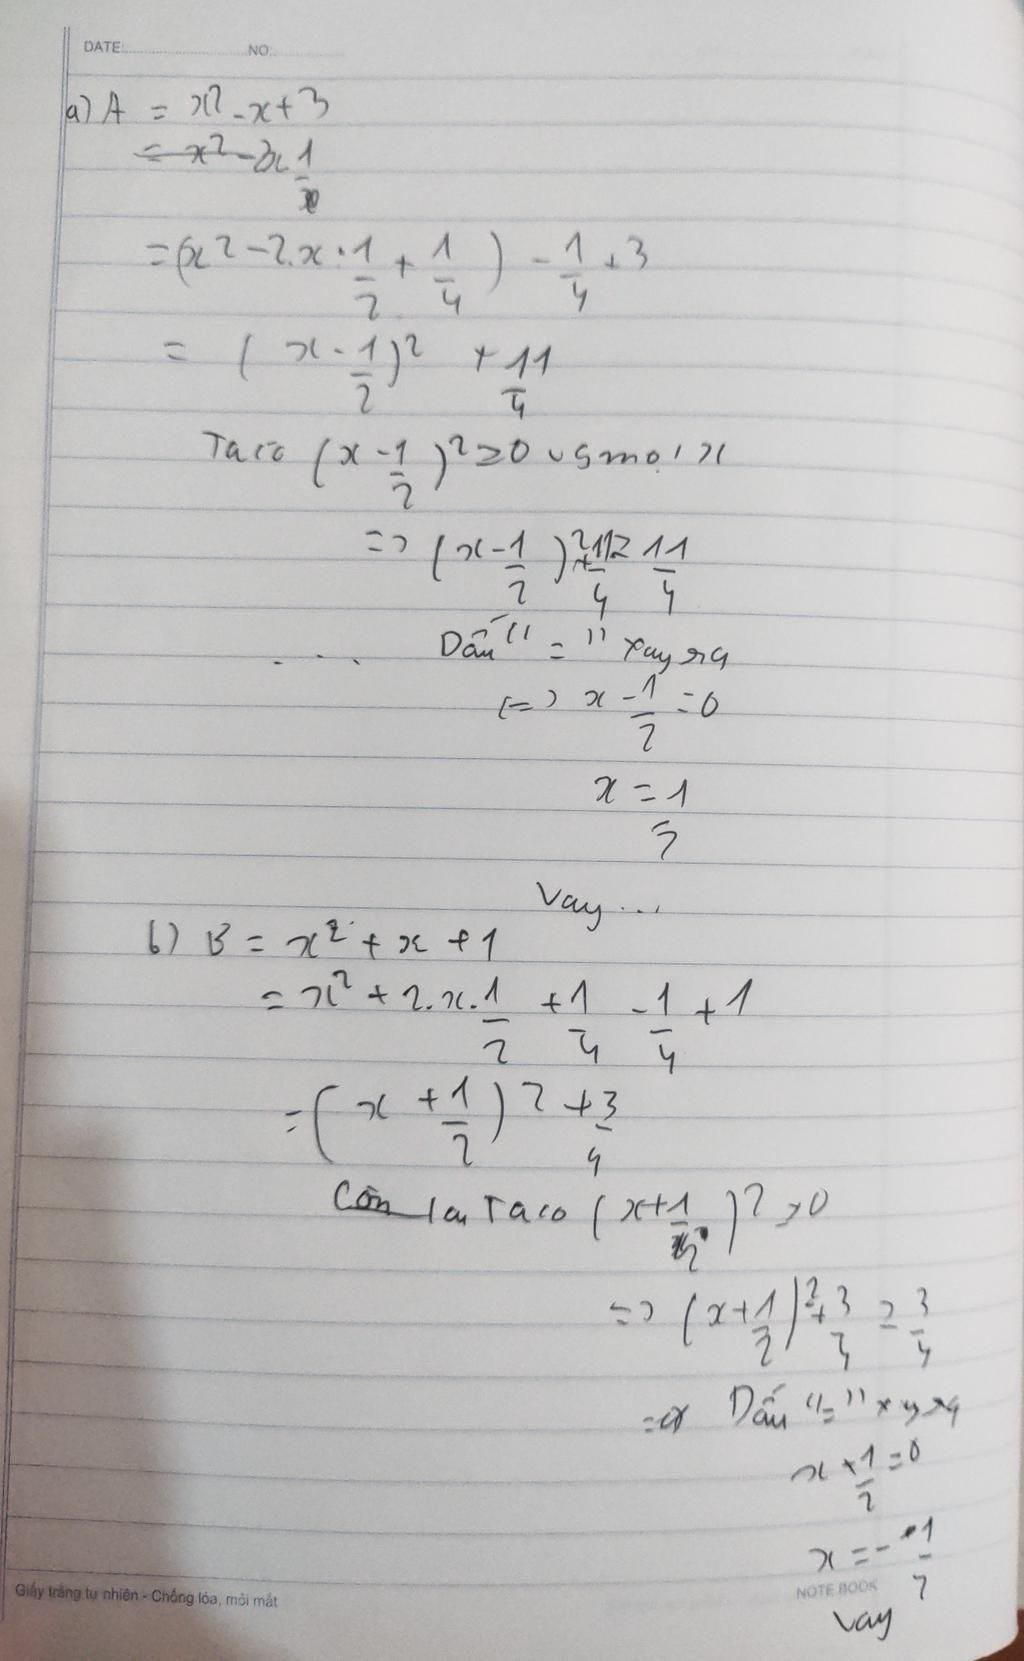 DATE: NO:
a) A = x² - x + 3
= x² - 2x 1/2
= (x² - 2.x.1/2 + 1/4) - 1/4 + 3
= (x - 1/2)² + 11/4
Ta có (x - 1/2)² ≥ 0 vs mọi x
=> (x - 1/2)² + 11/4 ≥ 11/4
... Dấu "=" xay ra
(=) x - 1/2 = 0
x = 1/2
Vay...
b) B = x² + x + 1
= x² + 2.x.1/2 + 1/4 - 1/4 + 1
= (x + 1/2)² + 3/4
Ta có (x + 1/2)² ≥ 0
=> (x + 1/2)² + 3/4 ≥ 3/4
=> Dấu "=" xy ra
x + 1/2 = 0
x = - 1/2
Giấy trắng tự nhiên - Chống lóa, mỏi mắt NOTE BOOK
Vay